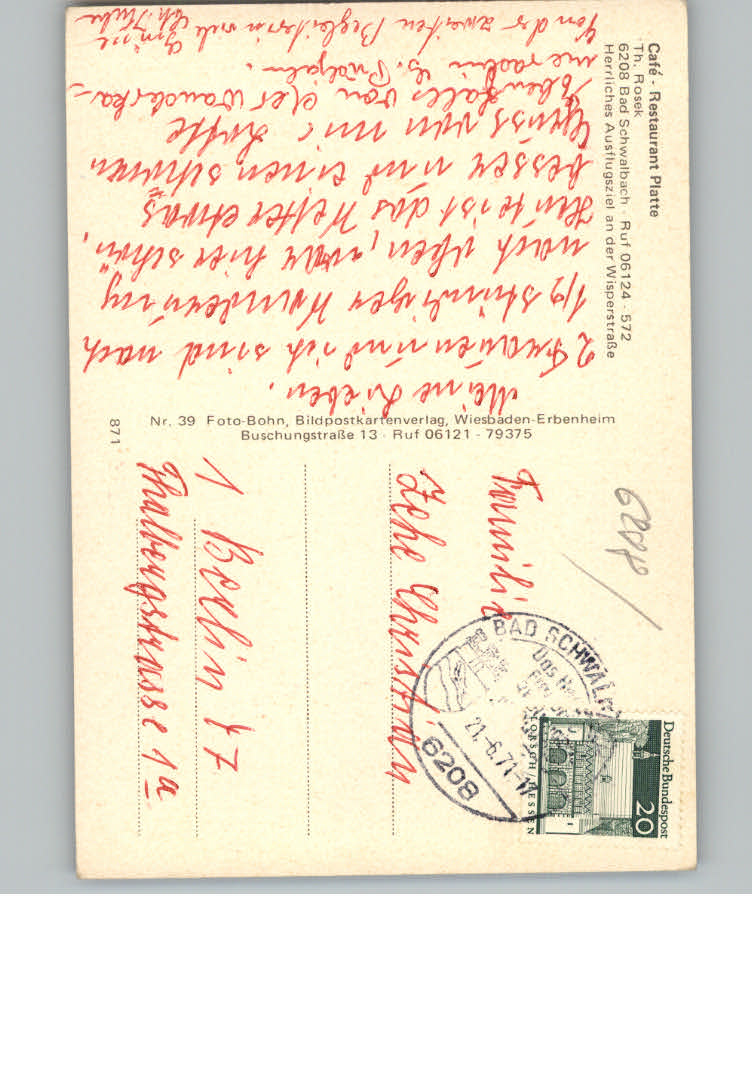 Café - Restaurant Platte
Th. Rosek
6208 Bad Schwalbach · Ruf 06124 - 572
Herrliches Ausflugsziel an der Wisperstraße
Meine Lieben.
2 Frauen und ich sind nach
1/2 stündiger Wanderung
nach oben, war hier schön.
Heute ist das Wetter etwas
besser und einen schönen
Gruss von mir Lotte
Ebenfalls von der Wanderka-
meradin
Von der zweiten Begleiterin viele
Grüße
Nr. 39 Foto-Bohn, Bildpostkartenverlag, Wiesbaden-Erbenheim
Buschungstraße 13 · Ruf 06121 - 79375
871
6208
Familie
Christian
1 Berlin 47
Thalbergstrasse 1a
6208 BAD SCHWALBACH
21.-6.71-17
Deutsche Bundespost
20
LORSCH/HESSEN